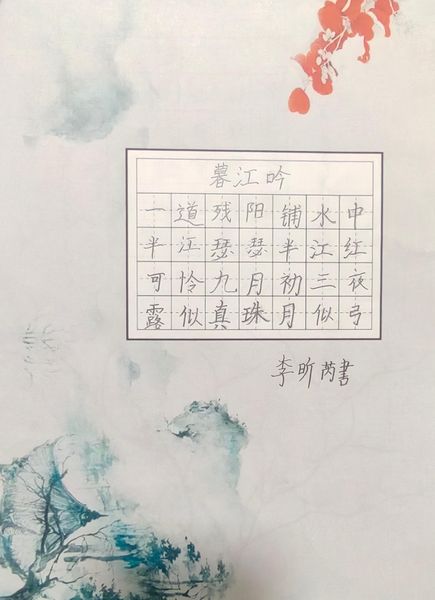 暮江吟
一道残阳铺水中
半江瑟瑟半江红
可怜九月初三夜
露似真珠月似弓
李昕芮書